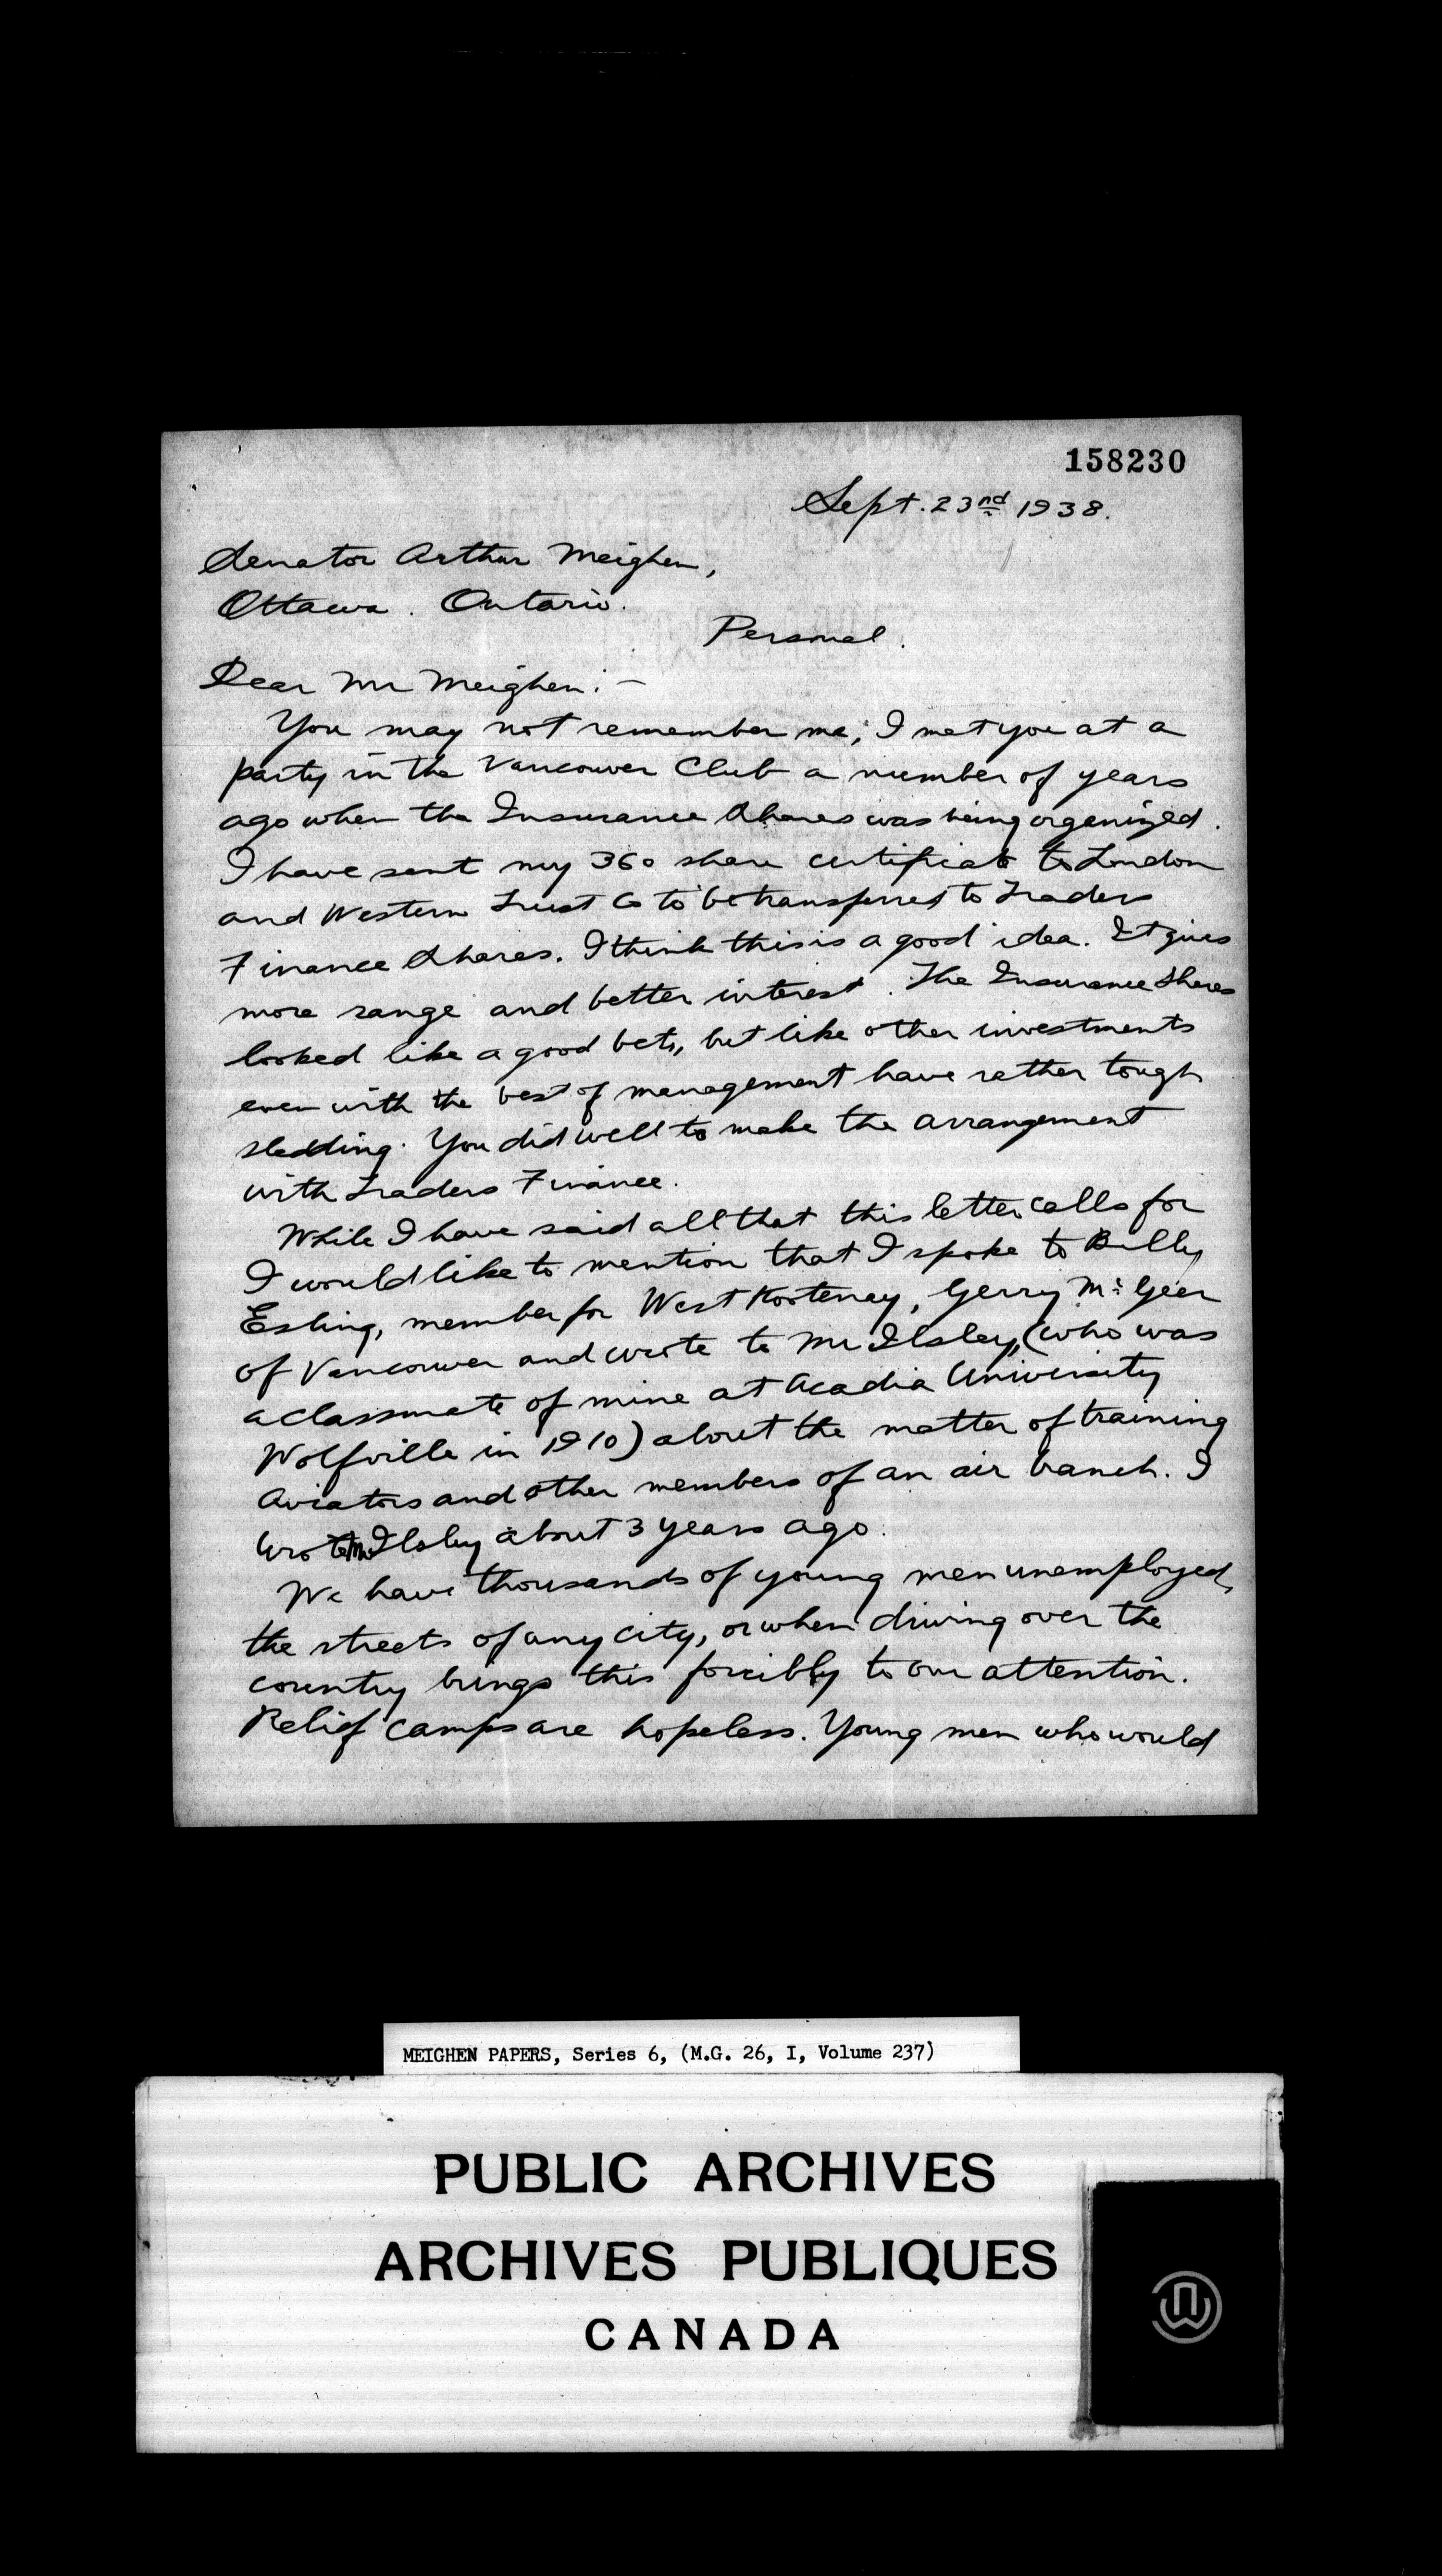 158230
Sept. 23nd 1938.
Senator Arthur Meighen,
Ottawa. Ontario.
Personal.
Dear Mr Meighen:-
You may not remember me; I met you at a
party in the Vancouver Club a number of years
ago when the Insurance Shares was being organized.
I have sent my 360 share certificate to London
and Western Trust Co to be transferred to Traders
Finance Shares. I think this is a good idea. It gives
more range and better interest. The Insurance Shares
looked like a good bet, but like other investments
even with the best of management have rather tough
sledding. You did well to make the arrangement
with Traders Finance.
While I have said all that this letter calls for
I would like to mention that I spoke to Billy
Esling, member for West Kootenay, Gerry McGeer
of Vancouver and wrote to Mr Ilsley, (who was
a classmate of mine at Acadia University
Wolfville in 1910) about the matter of training
Aviators and other members of an air branch. I
wrote Mr Ilsley about 3 years ago.
We have thousands of young men unemployed,
the streets of any city, or when driving over the
country brings this forcibly to our attention.
Relief camps are hopeless. Young men who would
MEIGHEN PAPERS, Series 6, (M.G. 26, I, Volume 237)
PUBLIC ARCHIVES
ARCHIVES PUBLIQUES
CANADA